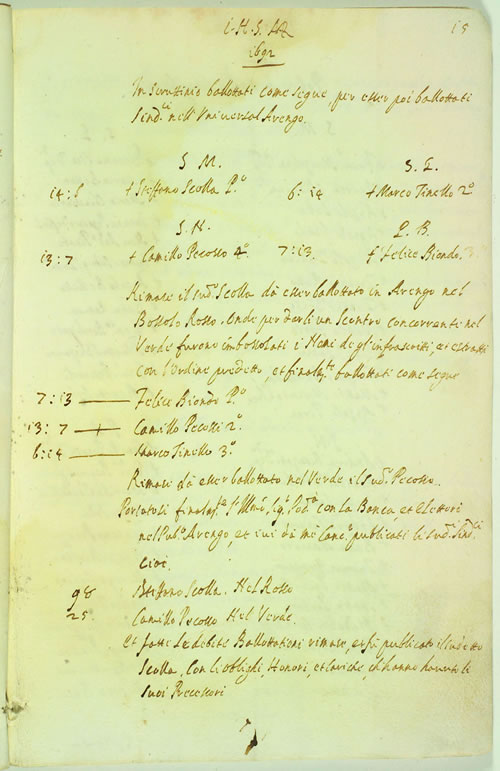 I.H.S. M 15
1692
In Scruttinio ballottati come segue, per esser poi ballottati
Sind.ci nell'Universal Arengo.
S M. S. E.
14:6 + Steffano Scolla P.o 6:14 + Marco Tinello 2.o
S. N. P. B.
13:7 + Camillo Pecosso 4.o 7:13. + Felice Biondo. 3
Rimase il sud.o Scolla da esser ballottato in Arengo nel
Bossolo Rosso. Onde per darli un Scontro concorrente nel
Verde furono imbossolati i Nomi de gl'infrascritti, et estratti
con l'ordine predetto, et finalm.te ballottati come segue
7:13 Felice Biondo P.o
13:7 Camillo Pecossi 2.o
6:14 Marco Tinello 3.o
Rimase da esser ballottato nel Verde il Sud.o Pecosso.
Portatosi finalm.te con la Banca, et Elettori
nel Pub.o Arengo, et ivi da me Canc.e publicati li sud.i Sind.ci
Cioè.
98 Steffano Scolla. Nel Rosso
25 Camillo Pecosso Nel Verde.
Et fatte le debite Ballottationi rimase, et fu publicato il sudetto
Scolla, Con li oblighi, Honori, et Cariche, ch'hanno havuto li
Suoi Precessori